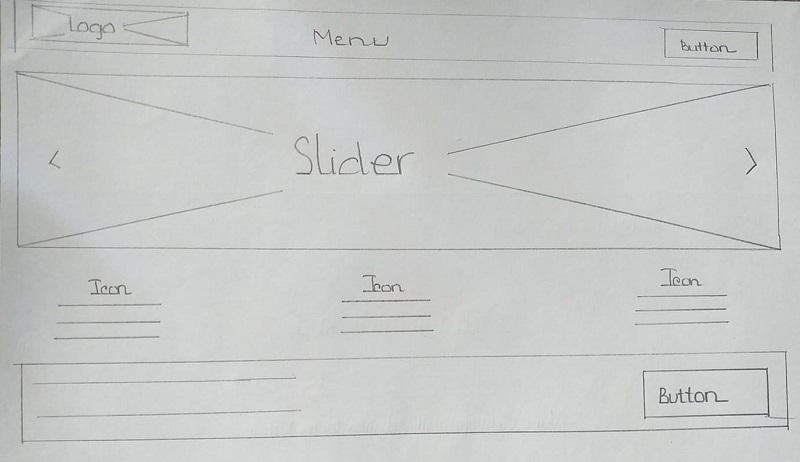 Logo
Menu
Button
<
Slider
>
Icon
Icon
Icon
Button